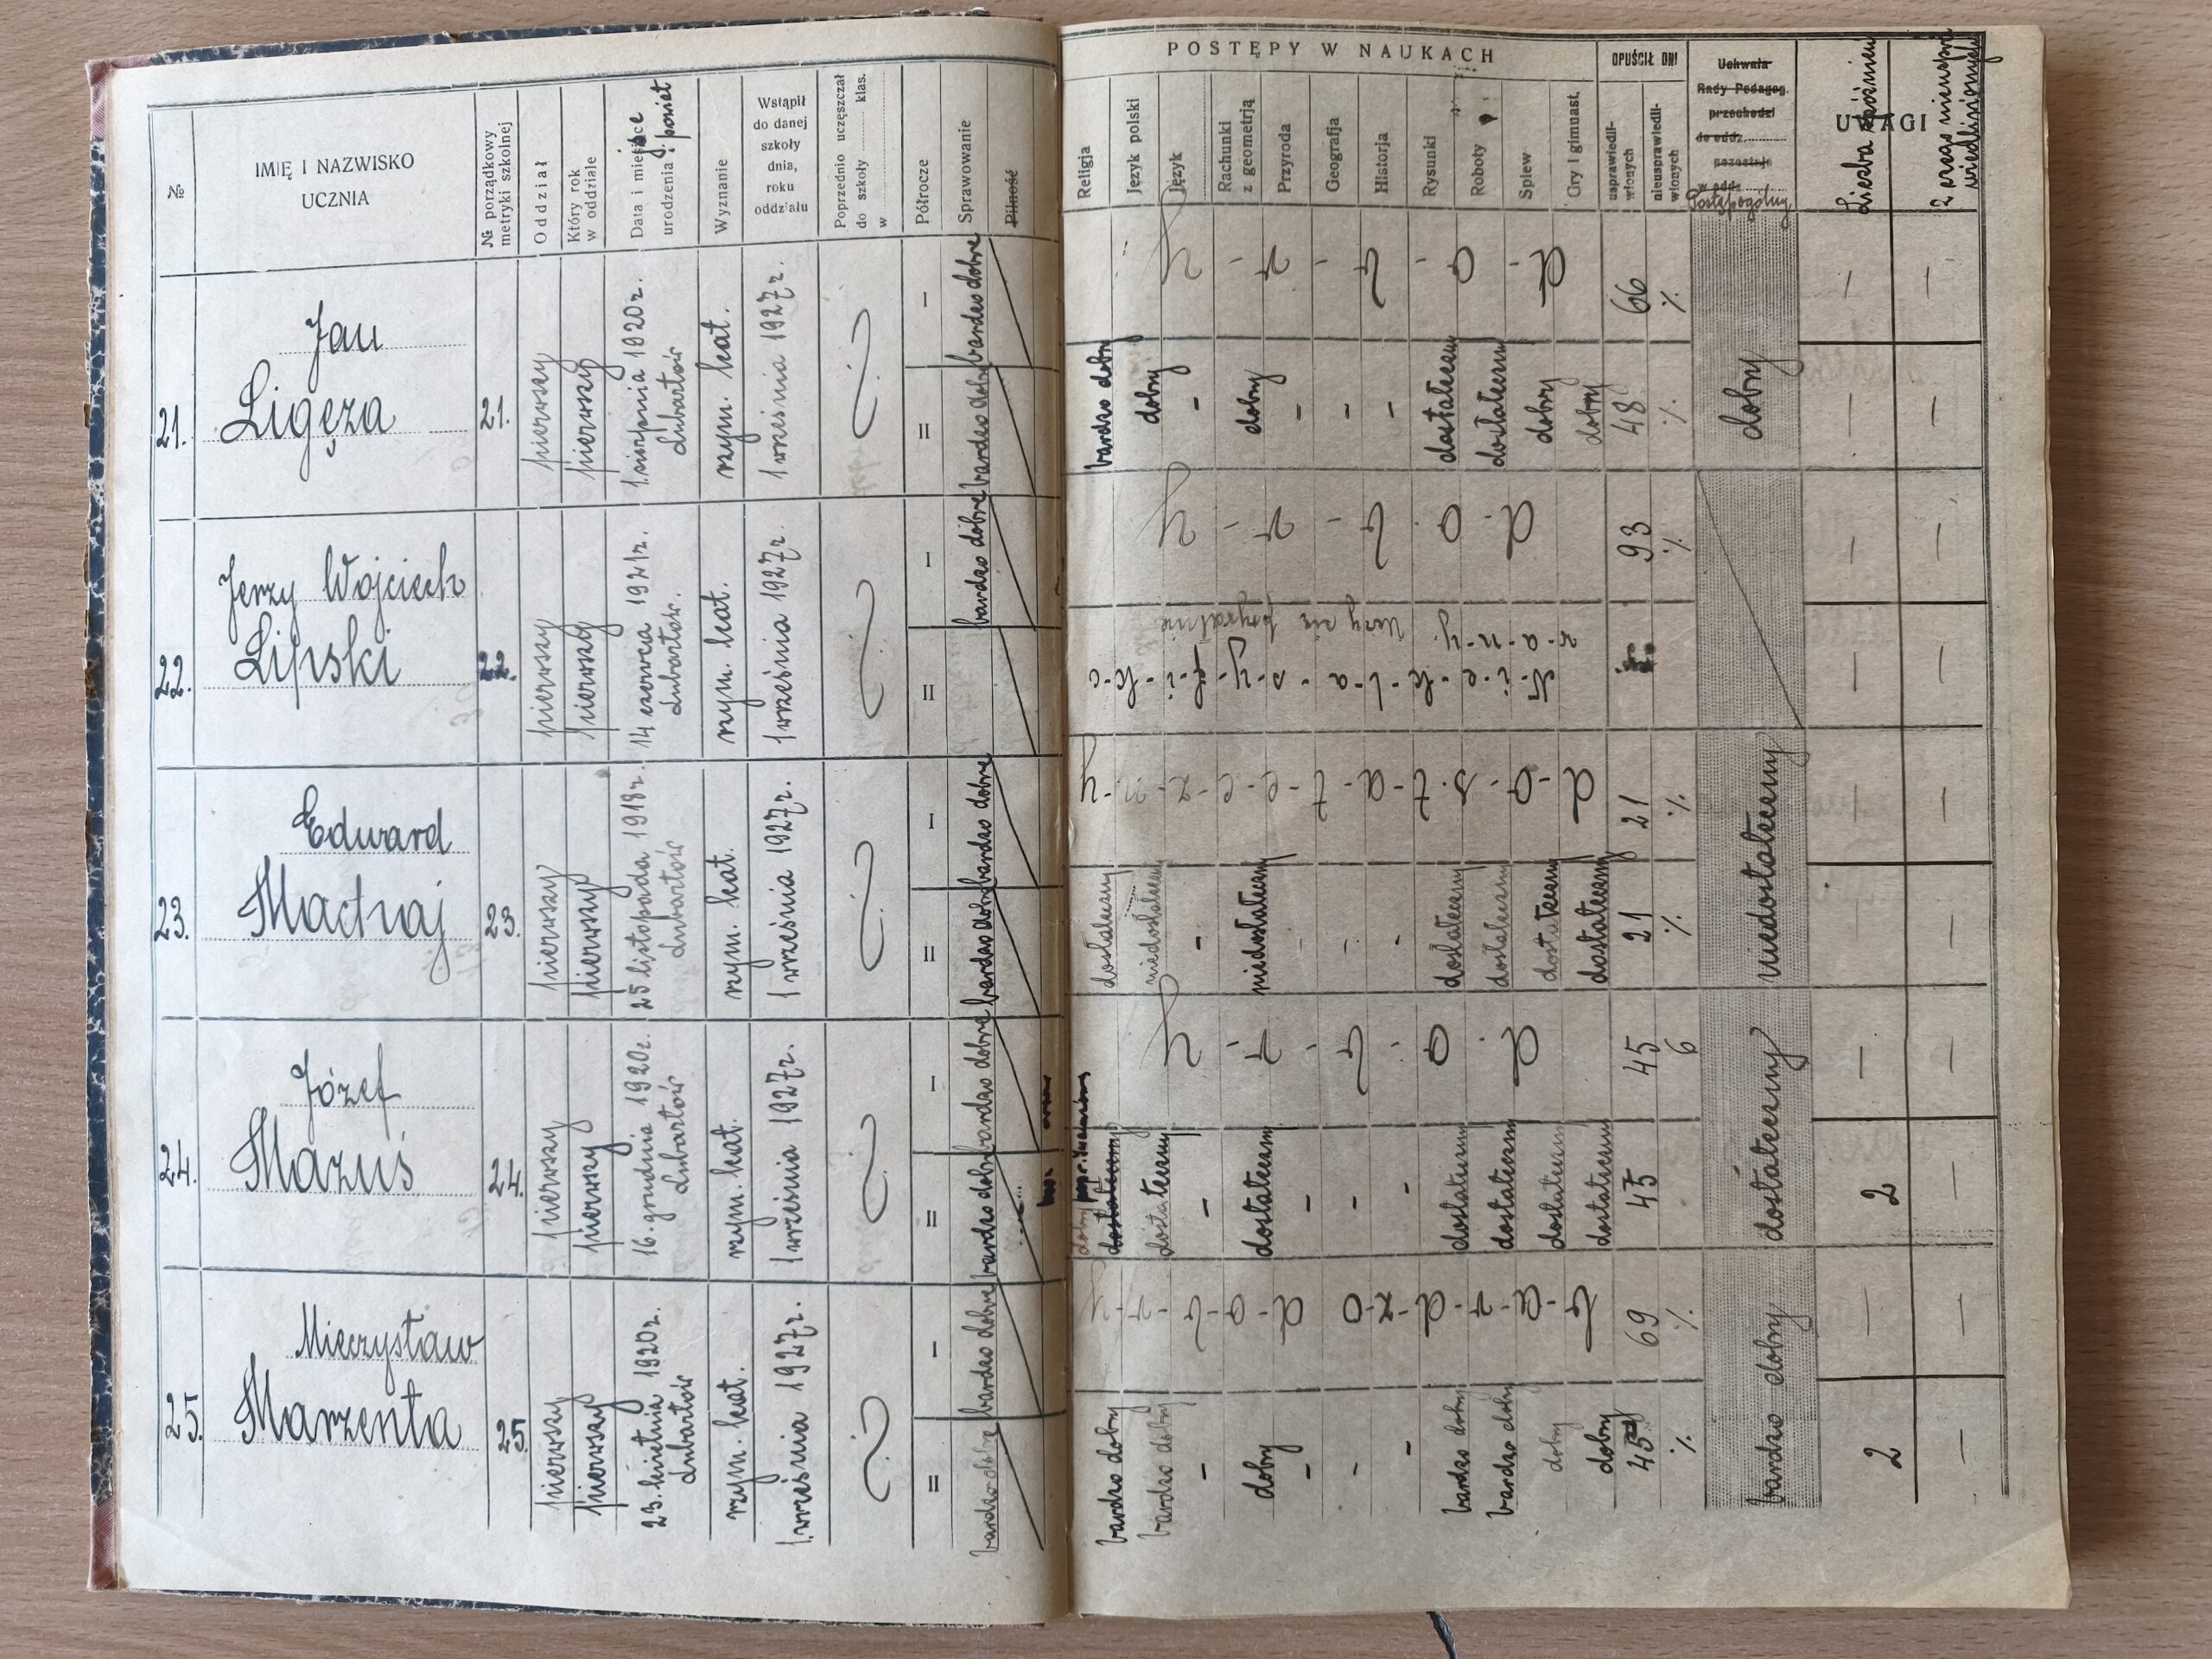 №
IMIĘ I NAZWISKO
UCZNIA
№ porządkowy
metryki szkolnej
Oddział
Który rok
w oddziale
Data i miejsce
urodzenia i powiat
Wyznanie
Wstąpił
do danej
szkoły
dnia,
roku
oddziału
Poprzednio uczęszczał
do szkoły klas.
w
Półrocze
Sprawowanie
Pilność
POSTĘPY W NAUKACH
Religja
Język polski
Język
Rachunki
z geometrją
Przyroda
Geografja
Historja
Rysunki
Roboty
Śpiew
Gry i gimnast.
OPUŚCIŁ DNI
usprawiedli-
wionych
nieusprawiedli-
wionych
Uchwała
Rady Pedagog.
przechodzi
do oddz.
pozostaje
w odd.
Postęp ogólny
UWAGI
Liczba spóźnień
z czego nieuspra
wiedliwionych
21.
Jan
Ligęza
21.
pierwszy
pierwszy
1 sierpnia 1920 r.
Lubartów
rzym. kat.
1 września 1927 r.
I
bardzo dobre
d - o - b - r - y
66
%
II
bardzo dobre
bardzo dobry
dobry
-
dobry
-
-
-
dostateczny
dostateczny
dobry
dobry
48
%
dobry
22.
Jerzy Wojciech
Lipski
22.
pierwszy
pierwszy
14 czerwca 1921 r.
Lubartów.
rzym. kat.
1 września 1927 r.
I
bardzo dobre
d - o - b - r - y
93
%
II
N-i-e-k-l-a-s-y-f-i-k-o
w-a-n-y.
Uczy się prywatnie
23.
Edward
Maćkraj
23.
pierwszy
pierwszy
25 listopada 1918 r.
Lubartów
rzym. kat.
1 września 1927 r.
I
bardzo dobre
d-o-s-t-a-t-e-c-z-n-y
21
%
II
bardzo dobre
dostateczny
niedostateczny
-
niedostateczny
dostateczny
dostateczny
dostateczny
dostateczny
21
%
niedostateczny
24.
Józef
Mazuś
24.
pierwszy
pierwszy
16. grudnia 1920 r.
Lubartów
rzym. kat.
1 września 1927 r.
I
bardzo dobre
d - o - b - r - y
45
6
II
bardzo dobre
dobry
dostateczny
dostateczny
-
dostateczny
-
-
-
dostateczny
dostateczny
dostateczny
dostateczny
45
dostateczny
2
25.
Mieczysław
Marzenta
25.
pierwszy
pierwszy
23. kwietnia 1920 r.
Lubartów
rzym. kat.
1. września 1927 r.
I
bardzo dobre
b-a-r-d-z-o d-o-b-r-y
69
%
II
bardzo dobre
bardzo dobry
bardzo dobry
-
dobry
-
-
-
bardzo dobry
bardzo dobry
dobry
dobry
45
%
bardzo dobry
2